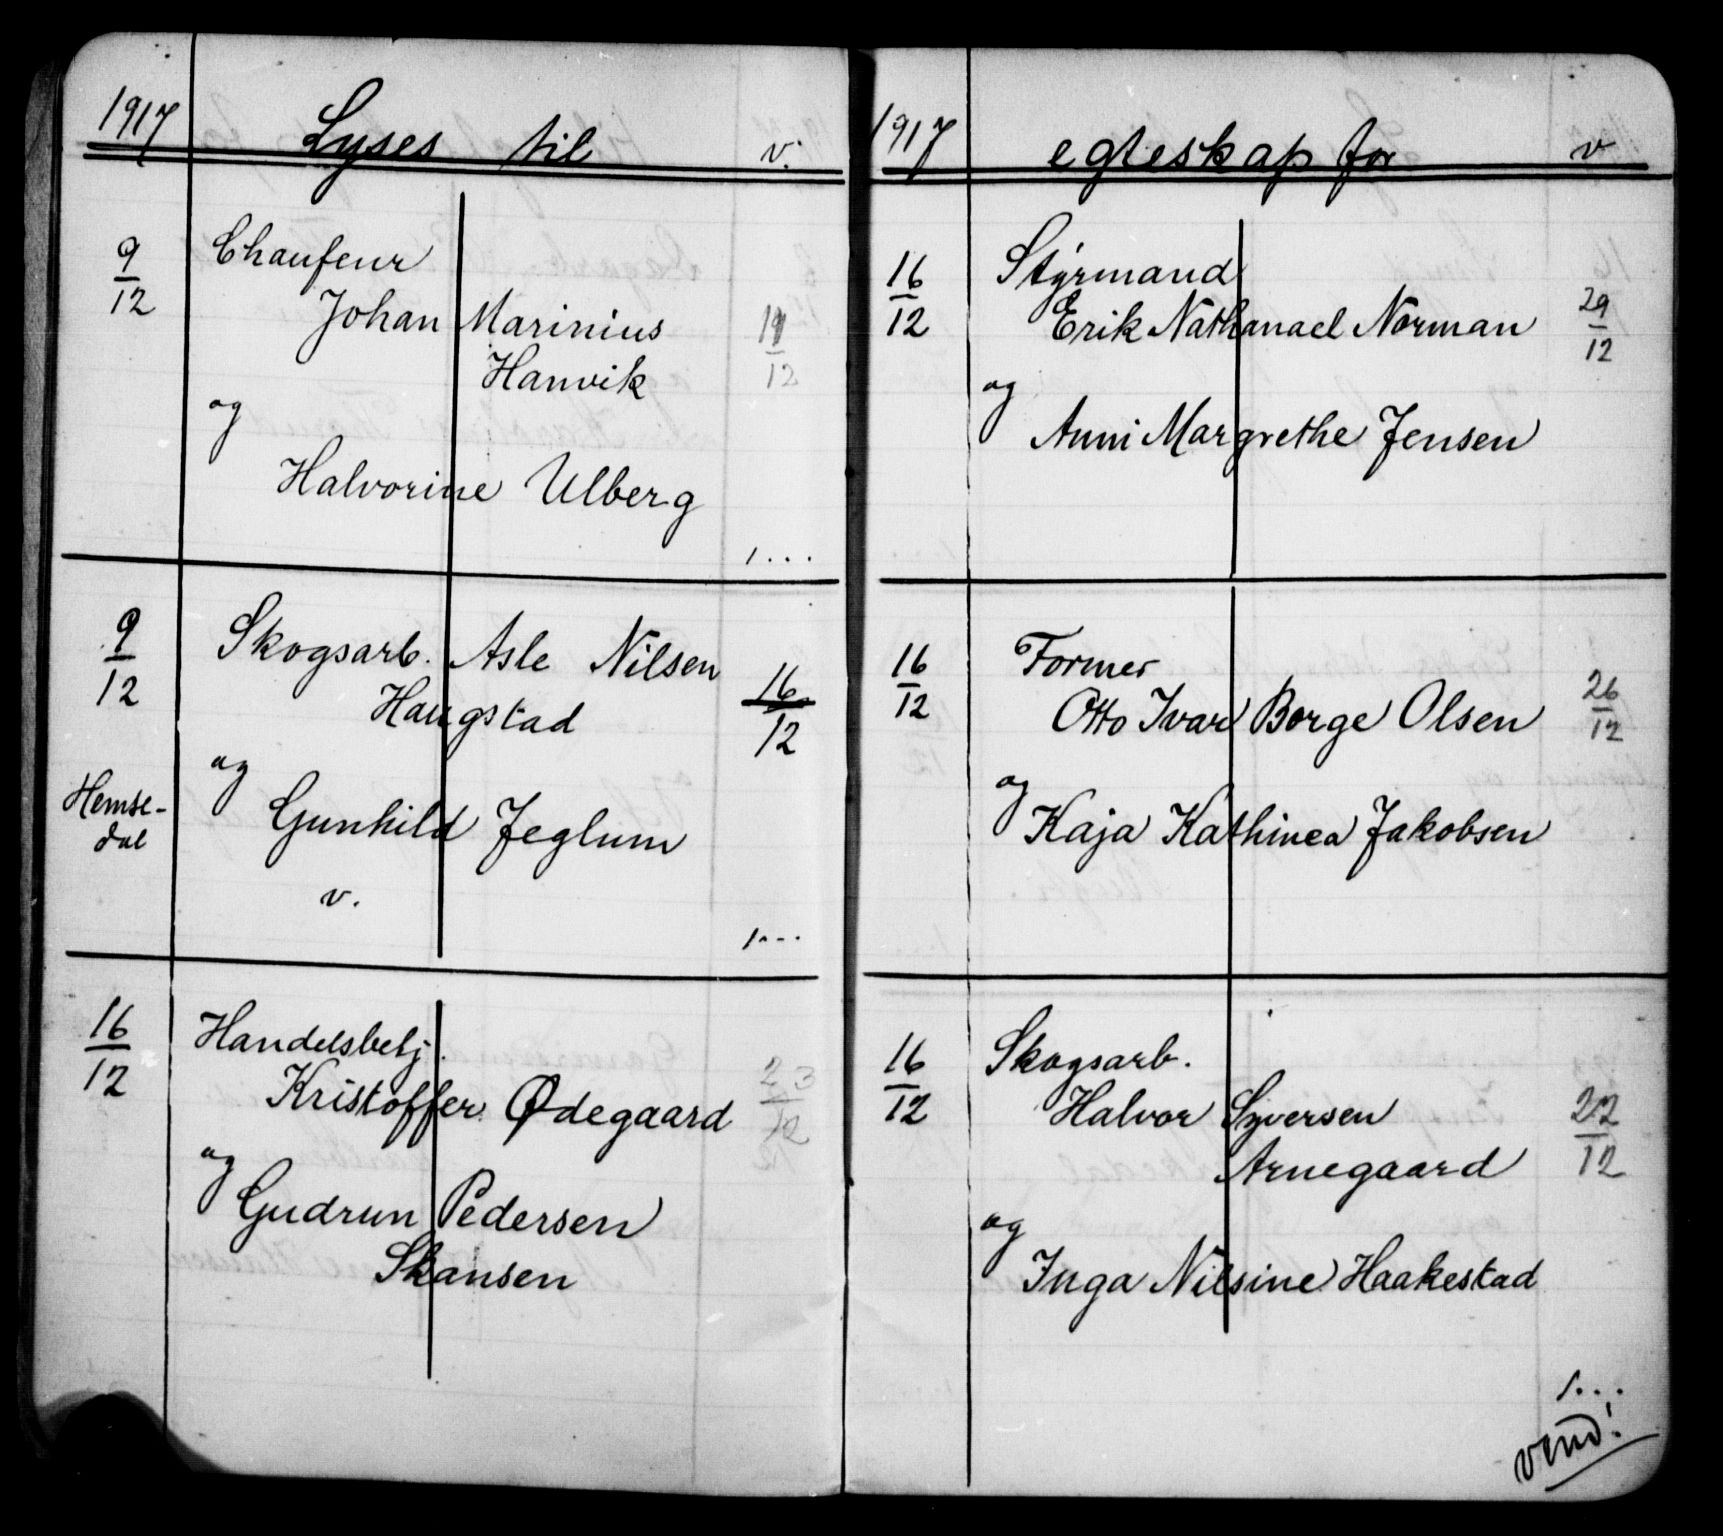 1917 Lyses til v.
9/12 Chaufeur
Johan Marinius
Hanvik 11/12
og
Halvorine Ulberg
1...
9/12 Skogsarb. Asle Nilsen
Haugstad 16/12
og
Hemse-
dal
Gunhild Jeglum
v.
1...
16/12 Handelsbetj.
Kristoffer Ødegaard 23/12
og
Gudrun Pedersen
Skansen
1917 egteskap for v
16/12 Styrmand
Erik Nathanael Norman 29/12
og
Anni Margrethe Jensen
16/12 Former
Otto Ivar Borge Olsen 26/12
og
Kaja Kathinea Jakobsen
16/12 Skogsarb.
Halvor Syversen 22/12
Arnegaard
og
Inga Nilsine Haakestad
1...
vend!